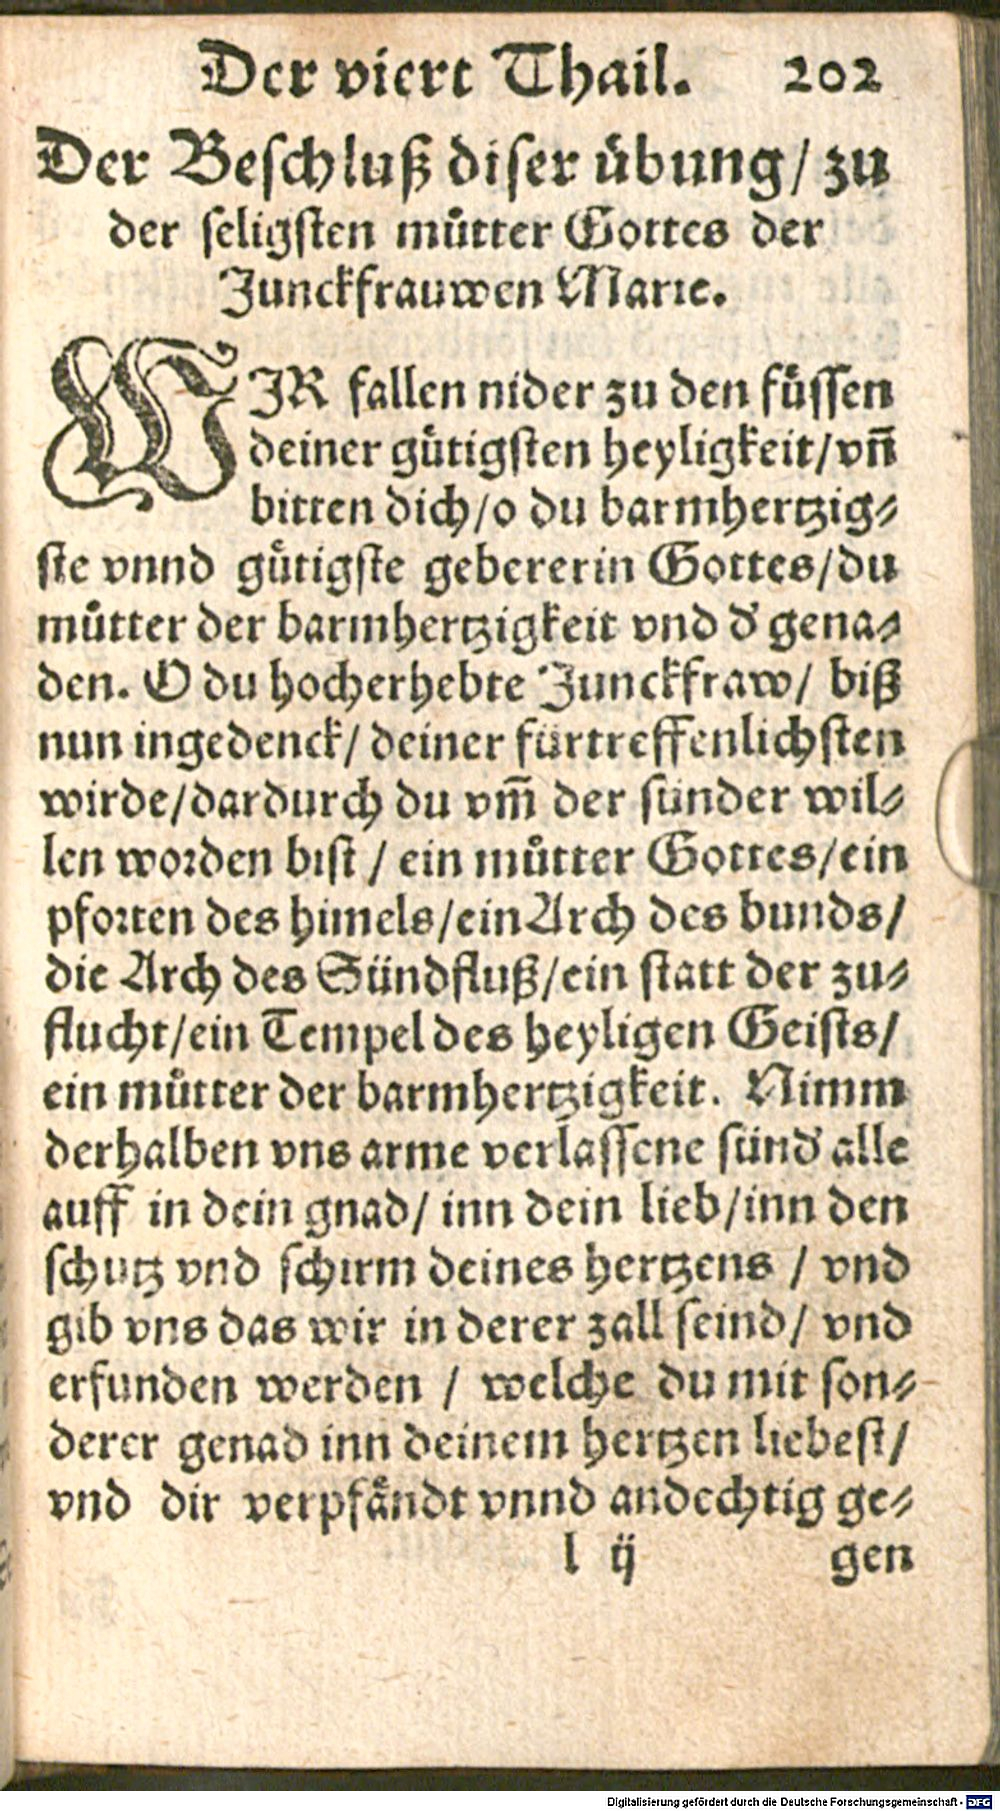 Der viert Thail. 202
Der Beschluß diser uͤbung/ zu
der seligsten muͦtter Gottes der
Junckfrauwen Marie.
WIR fallen nider zu den fuͤssen
deiner guͤtigsten heyligkeit/vnñ
bitten dich/o du barmhertzig⸗
ste vnnd guͤtigste gebererin Gottes/du
muͦtter der barmhertzigkeit vnd d' gena⸗
den. O du hocherhebte Junckfraw/ biß
nun ingedenck/ deiner fürtreffenlichsten
wirde/dardurch du vm̃ der sünder wil⸗
len worden bist / ein muͦtter Gottes/ein
pforten des himels/ein Arch des bunds/
die Arch des Sündfluß/ein statt der zu⸗
flucht/ein Tempel des heyligen Geists/
ein muͦtter der barmhertzigkeit. Nimm
derhalben vns arme verlassene sünd' alle
auff in dein gnad/ inn dein lieb/inn den
schutz vnd schirm deines hertzens / vnd
gib vns das wir in derer zall seind/ vnd
erfunden werden / welche du mit son⸗
derer genad inn deinem hertzen liebest/
vnd dir verpfaͤndt vnnd andechtig ge⸗
l ij gen
Digitalisierung gefördert durch die Deutsche Forschungsgemeinschaft - DFG